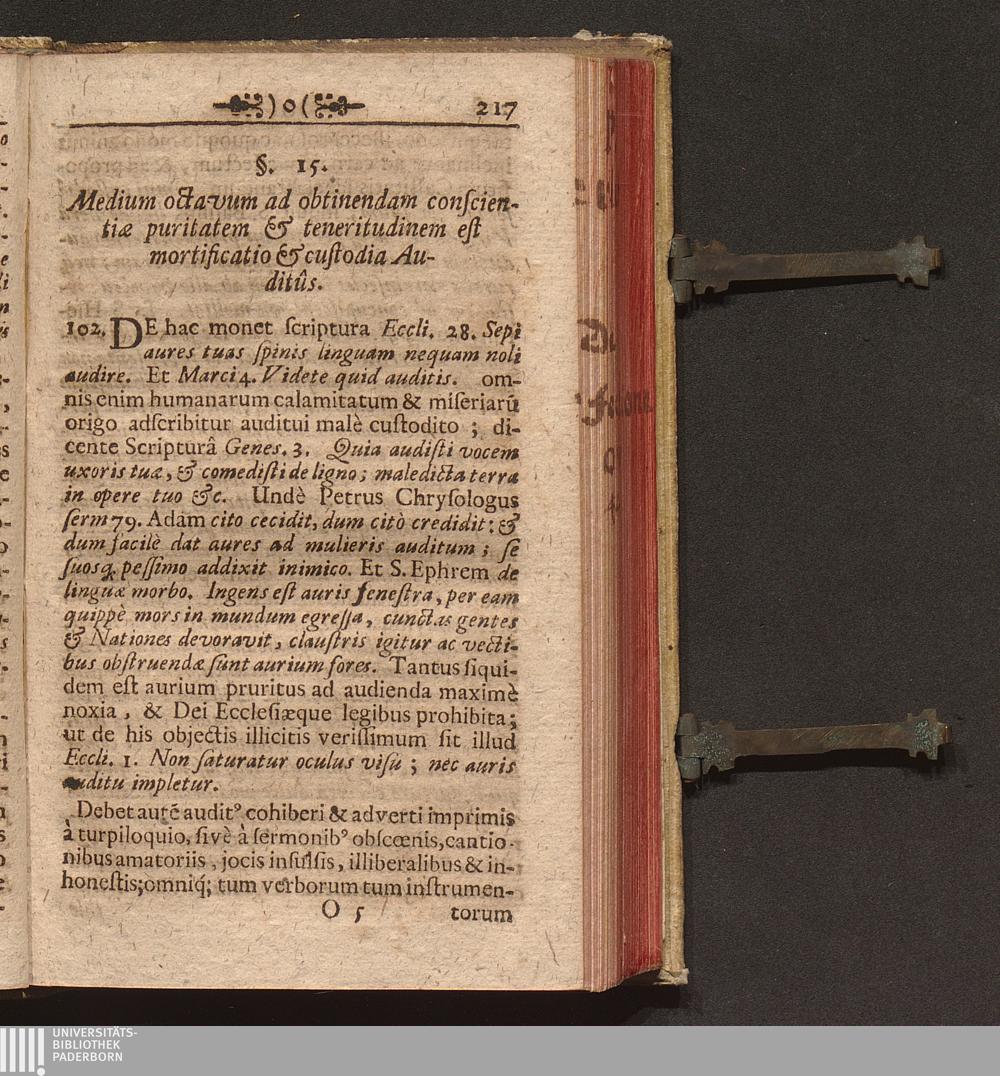 )o( 217
§. 15.
Medium octavum ad obtinendam conſcien-
tiæ puritatem & teneritudinem eſt
mortificatio & cuſtodia Au-
ditûs.
102. DE hac monet ſcriptura Eccli. 28. Sepi
aures tuas ſpinis linguam nequam noli
audire. Et Marci 4. Videte quid auditis. om-
nis enim humanarum calamitatum & miſeriarũ
origo adſcribitur auditui malè cuſtodito ; di-
cente Scripturâ Geneſ. 3. Quia audiſti vocem
uxoris tuæ, & comediſti de ligno ; maledicta terra
in opere tuo &c. Undè Petrus Chryſologus
ſerm 79. Adam cito cecidit, dum citò credidit : &
dum facilè dat aures ad mulieris auditum ; ſe
ſuosq. peſſimo addixit inimico. Et S. Ephrem de
linguæ morbo. Ingens eſt auris feneſtra, per eam
quippè mors in mundum egreſſa, cunctas gentes
& Nationes devoravit, clauſtris igitur ac vecti-
bus obſtruendæ ſunt aurium fores. Tantus ſiqui-
dem eſt aurium pruritus ad audienda maximè
noxia, & Dei Eccleſiæque legibus prohibita ;
ut de his objectis illicitis veriſſimum ſit illud
Eccli. 1. Non ſaturatur oculus viſu ; nec auris
auditu impletur.
Debet autẽ auditꝰ cohiberi & adverti imprimis
à turpiloquio, ſivè à ſermonibꝰ obſcœnis, cantio-
nibus amatoriis, jocis inſulſis, illiberalibus & in-
honeſtis; omniq́; tum verborum tum inſtrumen-
O 5 torum
UNIVERSITÄTS-
BIBLIOTHEK
PADERBORN